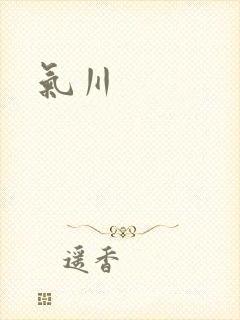 氣川
遥香